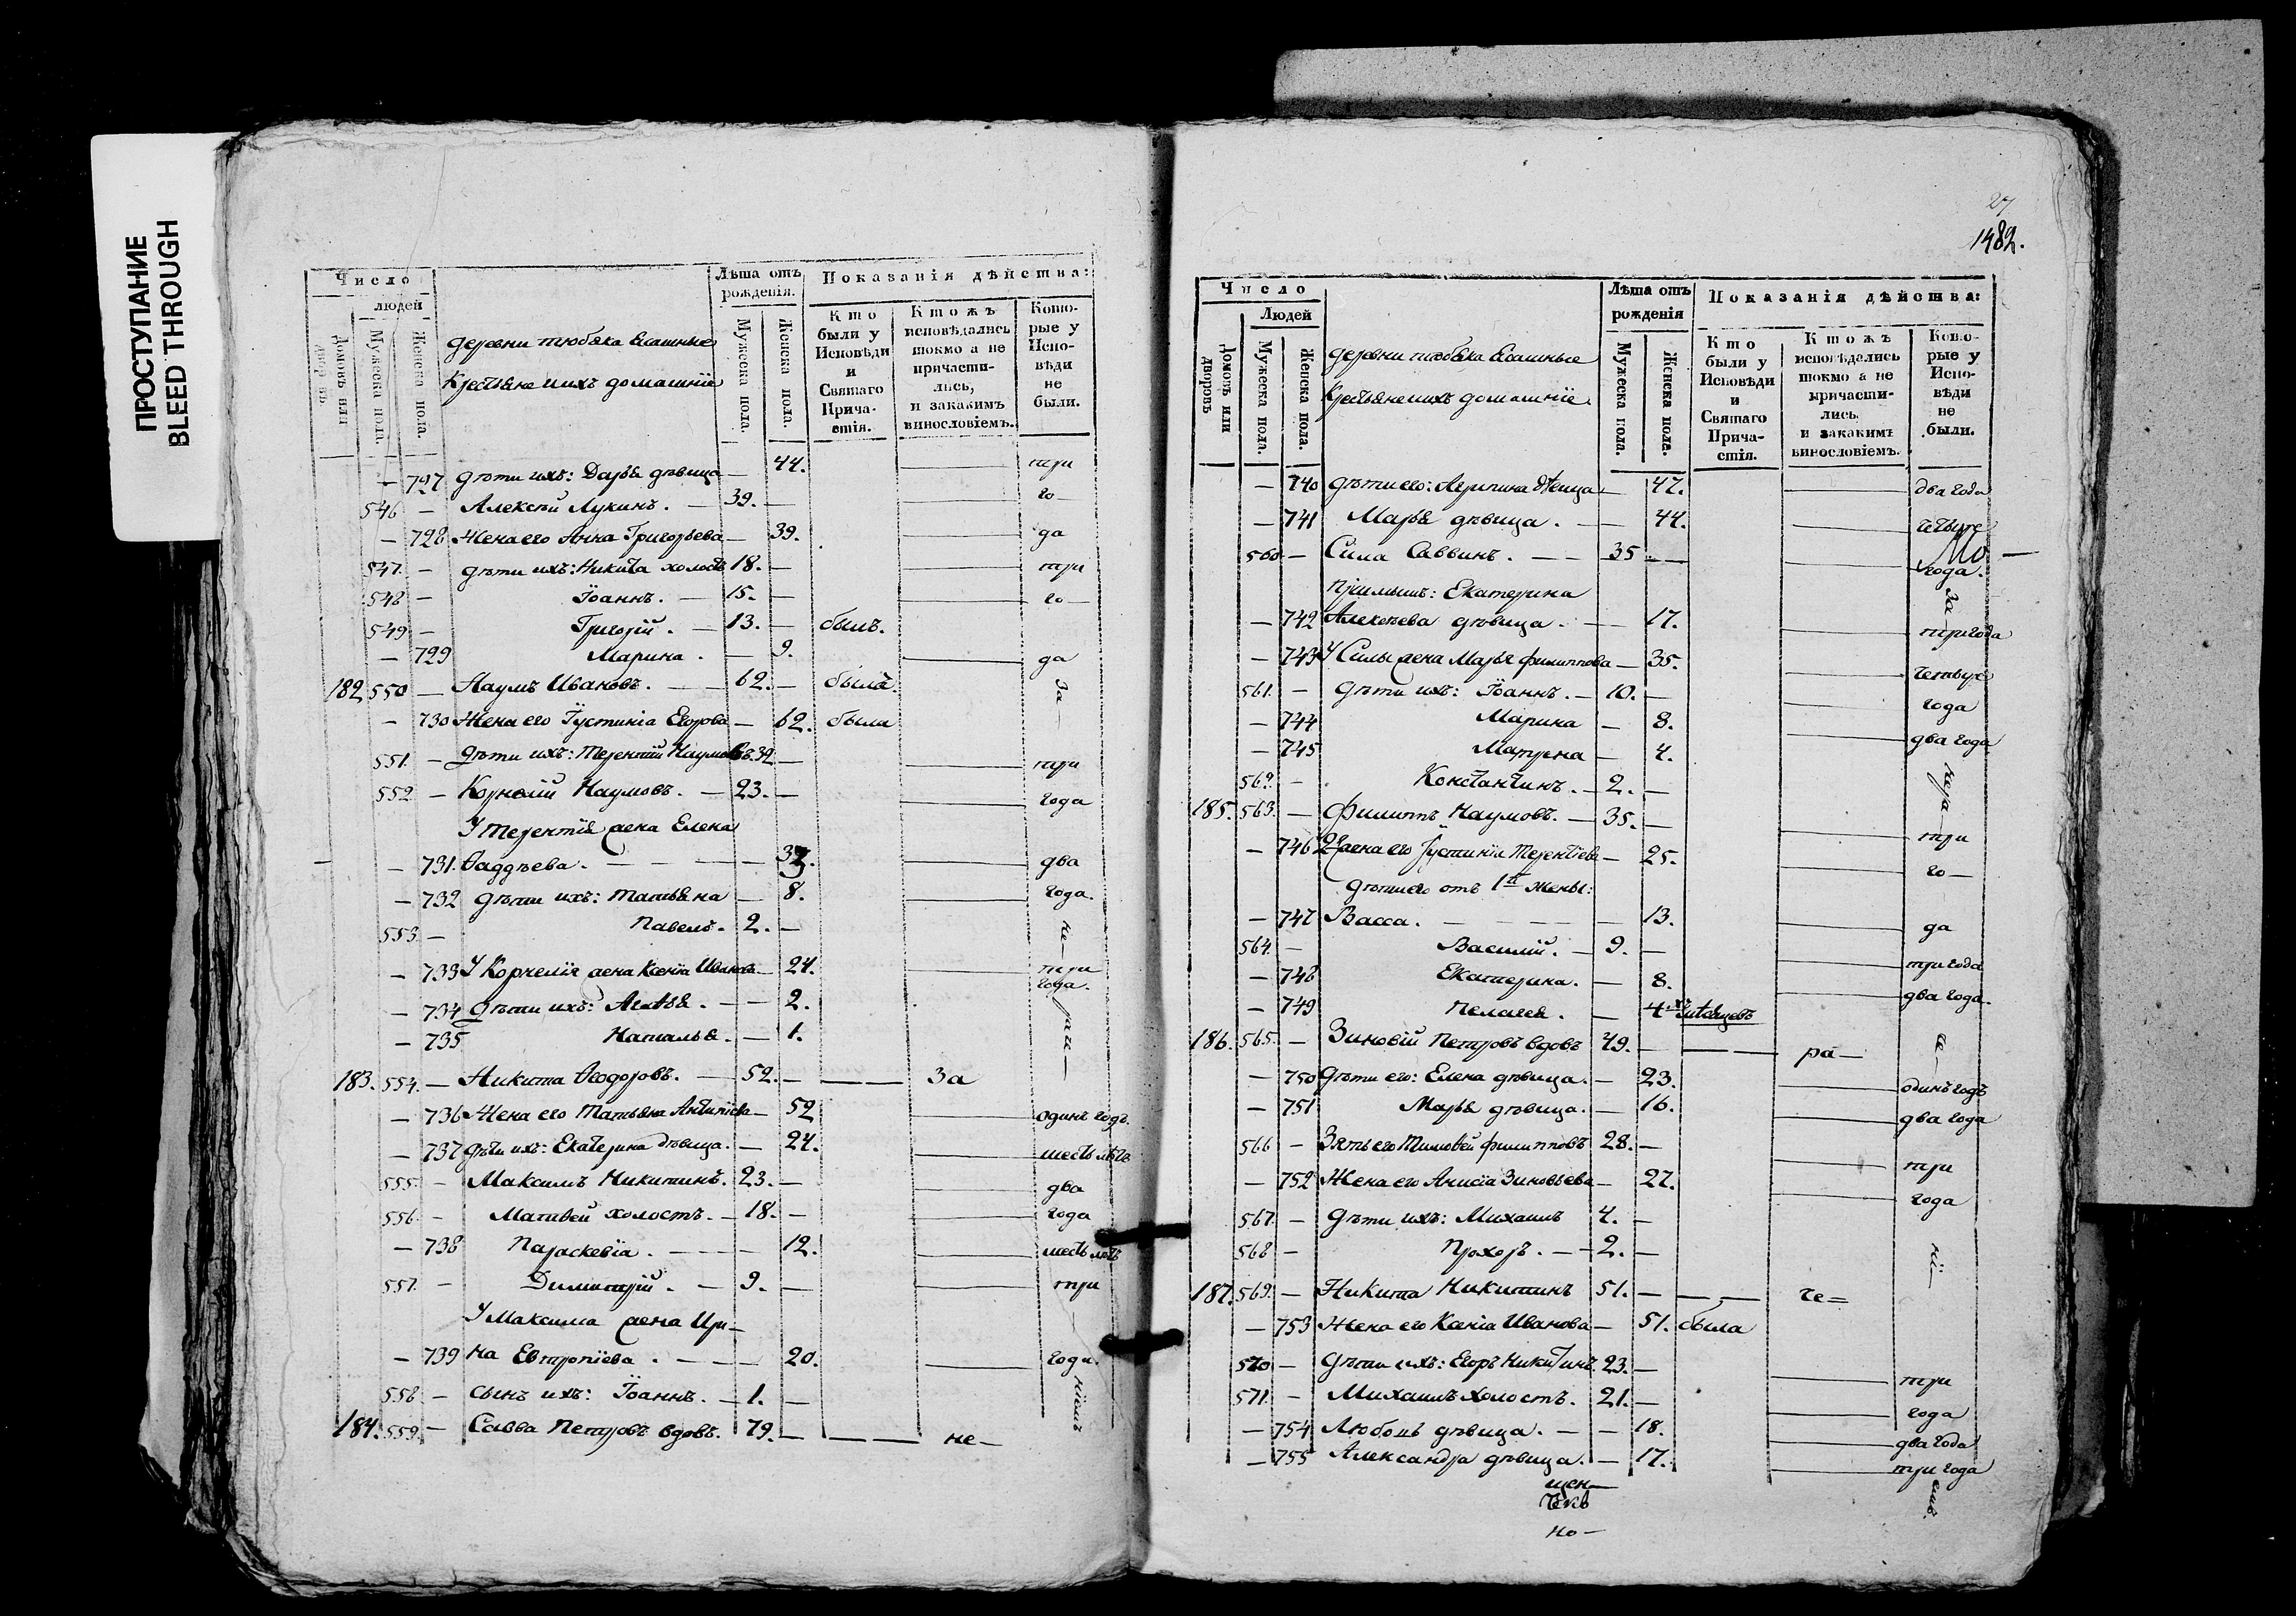 ПРОСТУПАНИЕ
BLEED THROUGH
Число
людей
Домовъ или дворовъ
Мужеска пола.
Женска пола.
деревни тюбяка Ясашные
Крестьяне и ихъ домашніе
Лѣта отъ рожденія.
Мужеска пола.
Женска пола.
Показанія дѣйства:
Кто были у Исповѣди и Святаго Причастія.
Ктожъ исповѣдались токмо а не причастились, и закакимъ винословіемъ.
Которые у Исповѣди не были.
— 727 дѣти ихъ: Дарья дѣвица — 44. три
546 — Алексѣй Лукинъ. — 39. — го—
— 728 Жена его Анна Григорьева — 39. да
547. — дѣти ихъ: Никита холостъ 18. — три
548 — Іоаннъ. — 15. — го—
549 — Григорій. — 13. — былъ.
— 729 Марина. — 9. да
182 550 — Наумъ Ивановъ. — 62. — былъ. За—
— 730 Жена его Іустинія Егорова — 62. была
551. — дѣти ихъ: Терентій Наумовъ. 32 — три
552 — Корнелій Наумовъ. — 23. — года
У Терентія жена Елена
— 731. Ѳаддѣева. — два
— 732 дѣти ихъ: Татьяна — 8. года.
553 — Павелъ. 2. — не—
— 733 У Корнелія жена Ксенія Иванова — 24. три года.
— 734 дѣти ихъ: Агаѳья. — 2.
— 735 Наталья. — 1.
183. 554. — Никита Ѳеодоровъ. — 52. — — — За
— 736 Жена его Татьяна Антипіева — 52 одинъ годъ.
— 737 дѣти ихъ: Екатерина дѣвица. — 24. шесть лѣтъ
555. — Максимъ Никитинъ. 23. — два
556 — Матвей холостъ. — 18. — года
— 738 Параскевіа. — 12. шесть лѣтъ
557. — Димитрій. — 9. — три
У Максима жена Ири—
— 739 на Евтропіева. — 20. года.
558 — сынъ ихъ: Іоаннъ. — 1. — ніемъ
184. 559. — Савва Петровъ вдовъ. 79. — — — не—
27
1482.
Число
Людей
Домовъ или дворовъ
Мужеска пола.
Женска пола.
деревни тюбяка Ясашные
Крестьяне и ихъ домашніе.
Лѣта отъ рожденія
Мужеска пола.
Женска пола.
Показанія дѣйства:
Кто были у Исповѣди и Святаго Причастія.
Ктожъ исповѣдались токмо а не причастились. и закакимъ винословіемъ.
Которые у Исповѣди не были.
— 740 дѣти его: Агрипина дѣвица — 47. два года
— 741 Марья дѣвица. — 44. четыре
560 — Сила Саввинъ. — — 35 — года.
Пріимышъ: Екатерина За—
— 742 Алексѣева дѣвица. — 17. три года
— 743 У Силы жена Марья Филиппова — 35. четыре
561. — дѣти ихъ: Іоаннъ. — 10. — года
— 744 Марина — 8.
— 745 Матрена — 4. два года
562. — Константинъ. — 2. — нера—
185. 563. — Филиппъ Наумовъ. — 35. — три
— 746 2 жена его Іустинія Терентіева — 25. го—
дѣти его отъ 1й жены:
— 747 Васса. — 13. да
564. — Василій. — 9. —
— 748 Екатерина. — 8. три года
— 749 Пелагея. — 4 два года.
186. 565. — Зиновій Петровъ вдовъ 49. — — — ра—
— 750 дѣти его: Елена дѣвица. — 23. одинъ годъ
— 751 Марья дѣвица. — 16. два года
566 — Зять его Тимоѳей Филипповъ 28. — три
— 752 Жена его Анисіа Зиновьева — 27. года
567. — дѣти ихъ: Михаилъ 4. —
568 — Прохоръ. — 2. —
187. 569. — Никита Никитинъ 51. — — — че=
— 753 Жена его Ксенія Иванова — 51. была
570 — дѣти ихъ: Егоръ Никитинъ. 23. — три
571. — Михаилъ холостъ. 21. — года
— 754 Любовь дѣвица. — — 18. два года
— 755 Александра дѣвица. — 17. три года
щен—
но—